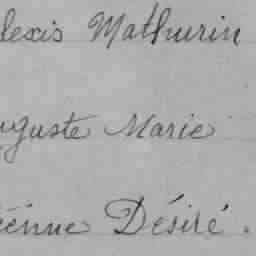 lexis Mathurin
uguste Marie
ienne Désiré.